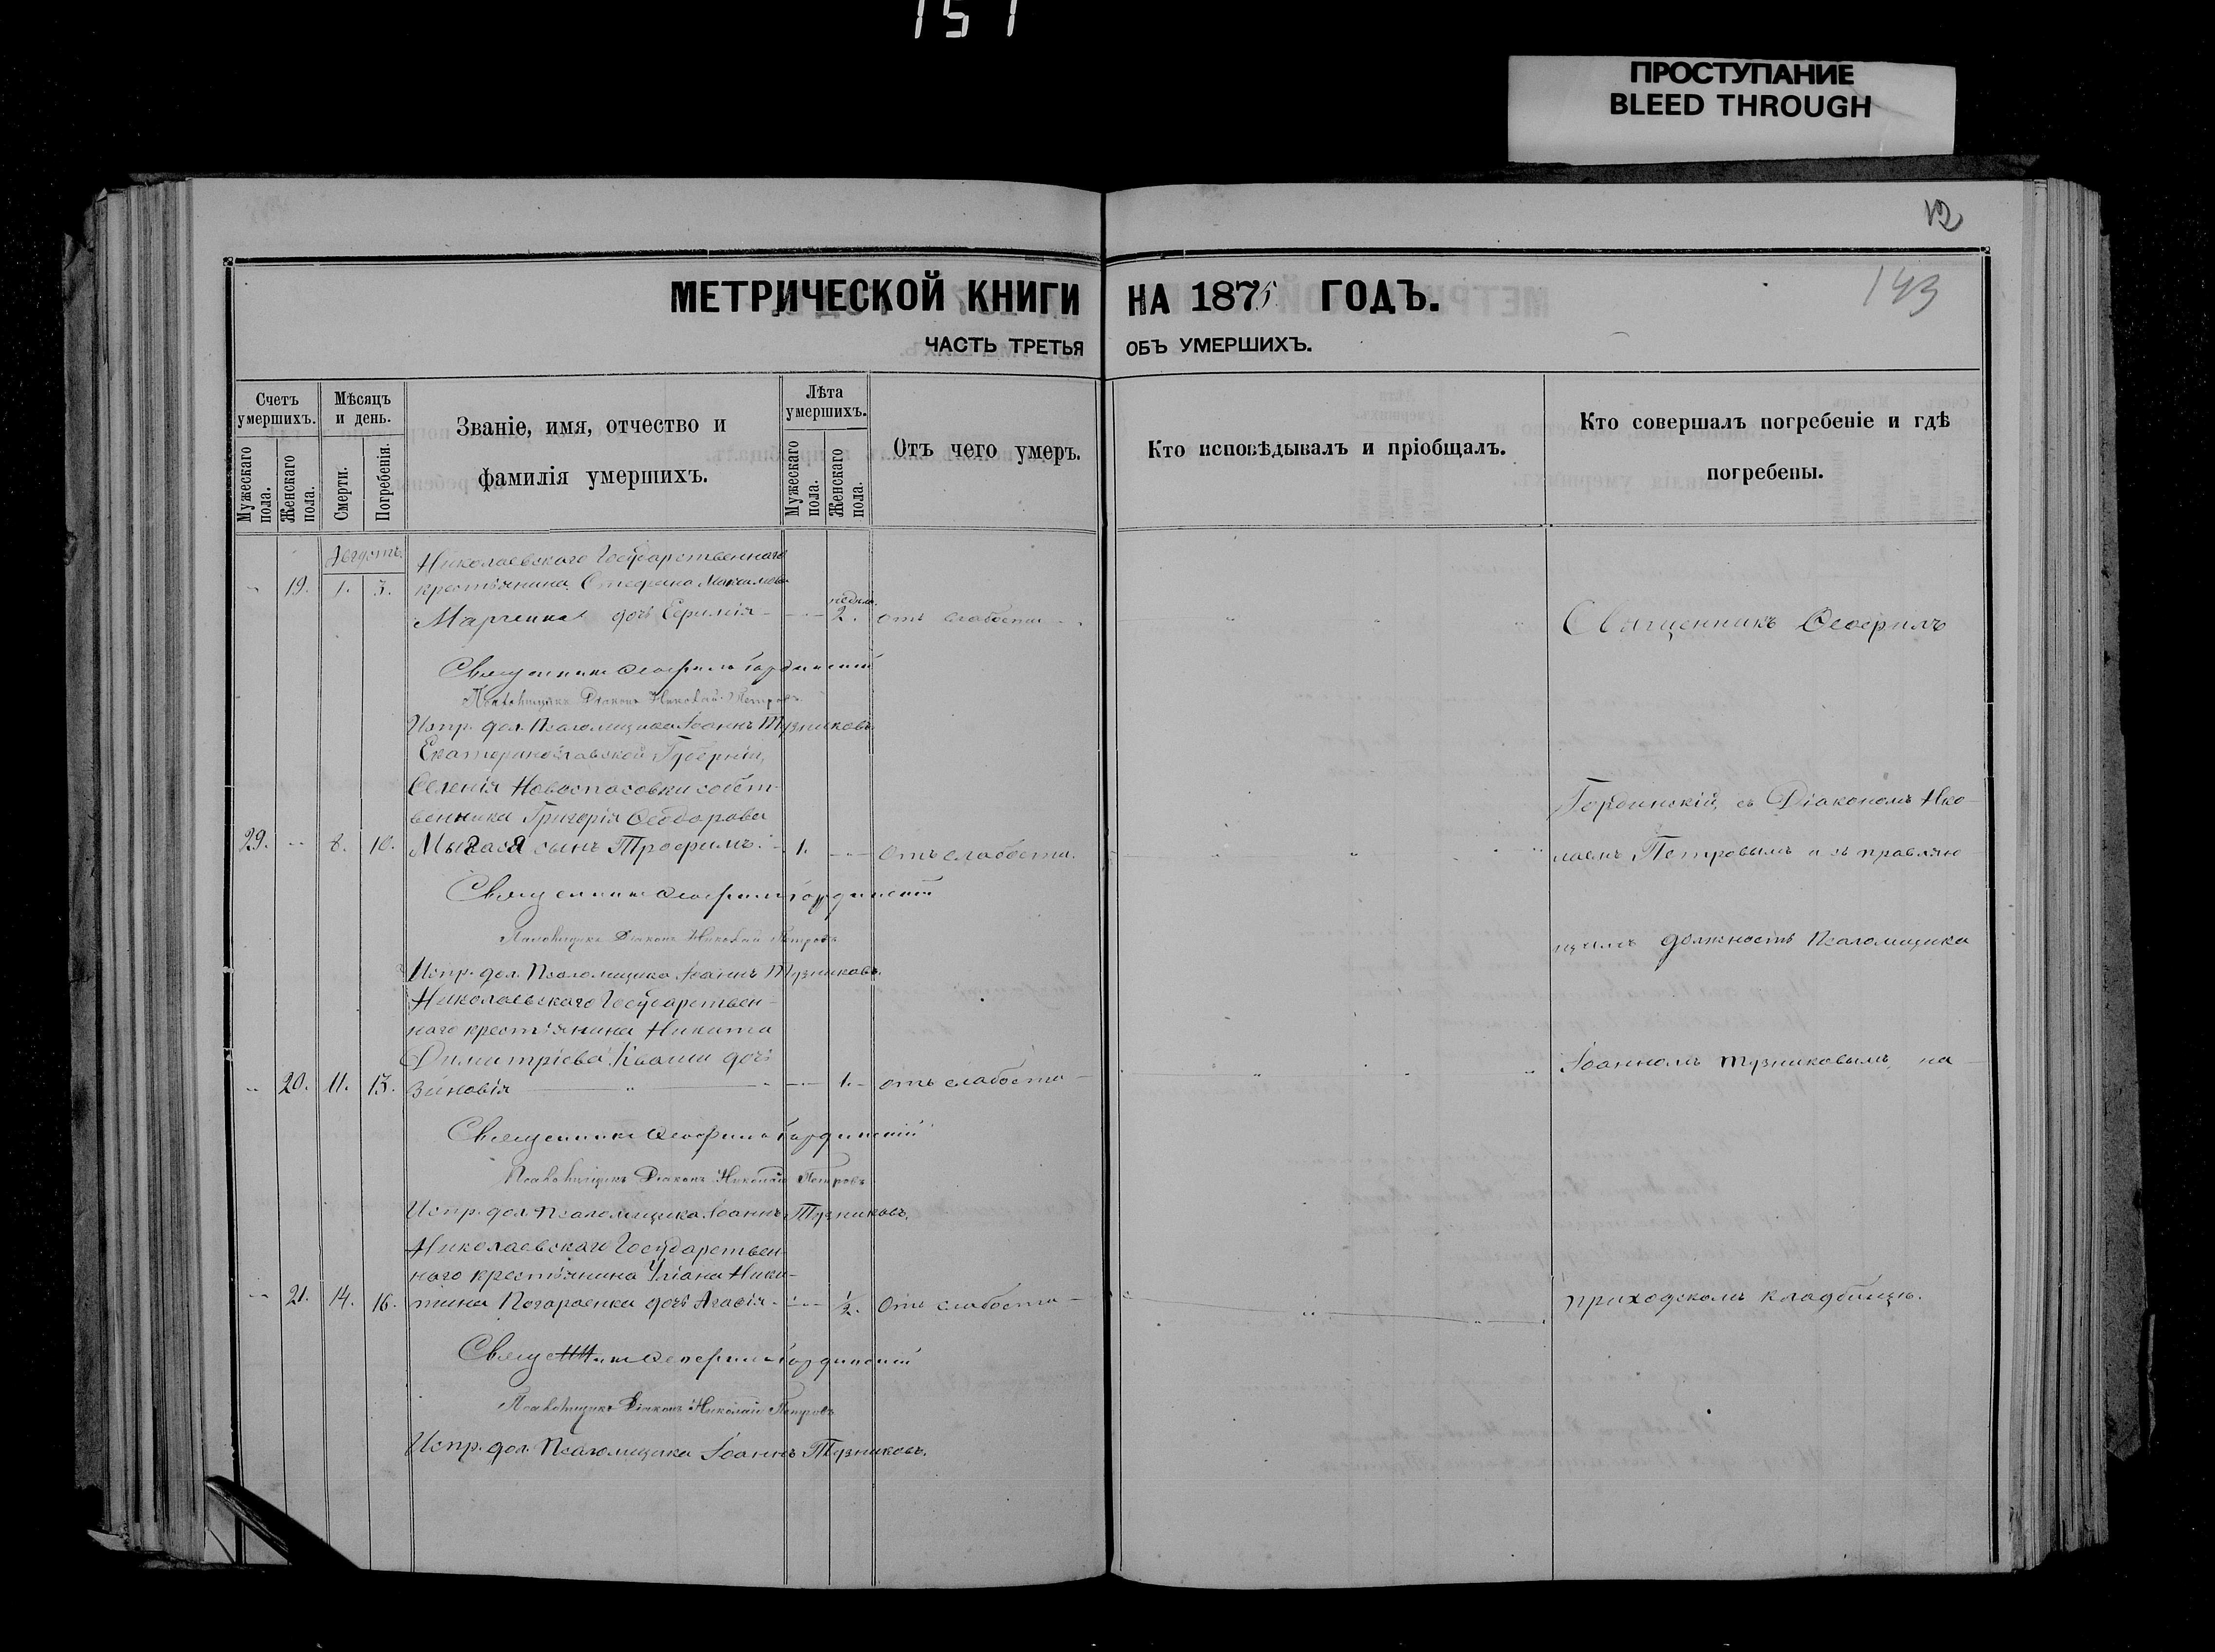 151
ПРОСТУПАНИЕ
BLEED THROUGH
12
143
МЕТРИЧЕСКОЙ КНИГИ НА 1875 ГОДЪ.
ЧАСТЬ ТРЕТЬЯ ОБЪ УМЕРШИХЪ.
Счетъ умершихъ.
Мужескаго пола.
Женскаго пола.
Мѣсяцъ и день.
Смерти.
Погребенія.
Званіе, имя, отчество и
фамилія умершихъ.
Лѣта умершихъ.
Мужескаго пола.
Женскаго пола.
Отъ чего умеръ.
Кто исповѣдывалъ и пріобщалъ.
Кто совершалъ погребеніе и гдѣ
погребены.
Августъ.
Николаевскаго Государственнаго
19. 1. 3. крестьянина Стефана
дочь Ефимія 2. отъ слабости Священникъ Ѳеофилъ
Священникъ Ѳеофилъ Гординскій
Псаломщикъ Діаконъ Николай Петровъ
Испр. дол. Псаломщика Іоаннъ Тузниковъ.
Екатеринославской Губерніи,
Селенія Новоспасовки собст-
венника Григорія Ѳеодорова
Гординскій, съ Діакономъ Нко-
29. 8. 10. сынъ Трофимъ. 1. Отъ слабости.
лаемъ Петровымъ и правляю
Священникъ Ѳеофилъ Гординскій
Псаломщикъ Діаконъ Николай Петровъ
щимъ должность Псаломщика
Испр. дол. Псаломщика Іоаннъ Тузниковъ.
Николаевскаго Государствен-
наго крестьянина Никита
Димитріева Кваши дочь
Іоанномъ Тузниковымъ, на
20. 11. 13. Зиновія 1. отъ слабости
Священникъ Ѳеофилъ Гординскій
Псаломщикъ Діаконъ Николай Петровъ
Испр. дол. Псаломщика Іоаннъ Тузниковъ.
Николаевскаго Государствен-
наго крестьянина Уліана Ники-
21. 14. 16. тина дочь Агафія 1/2. Отъ слабости приходскомъ кладбищѣ.
Священникъ Ѳеофилъ Гординскій
Псаломщикъ Діаконъ Николай Петровъ
Испр. дол. Псаломщика Іоаннъ Тузниковъ.